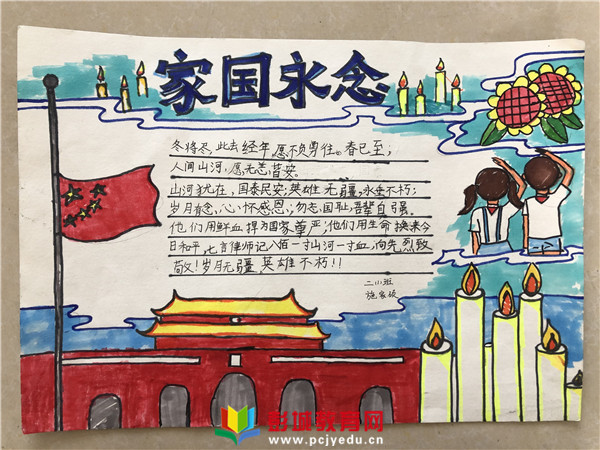 家国永念
冬将尽,此去经年,愿不负勇往。春已至,
人间山河,愿无恙皆安。
山河犹在,国泰民安;英雄无疆,永垂不朽;
岁月有念,心怀感恩;勿忘国耻,吾辈自强。
他们用鲜血捍为国家尊严;他们用生命换来今
日和平 七言律师记八佰一寸山河一寸血,向先烈致
敬!岁月无疆 英雄不朽!!
二小班
施家硕
彭城教育网
www.pcjyedu.cn